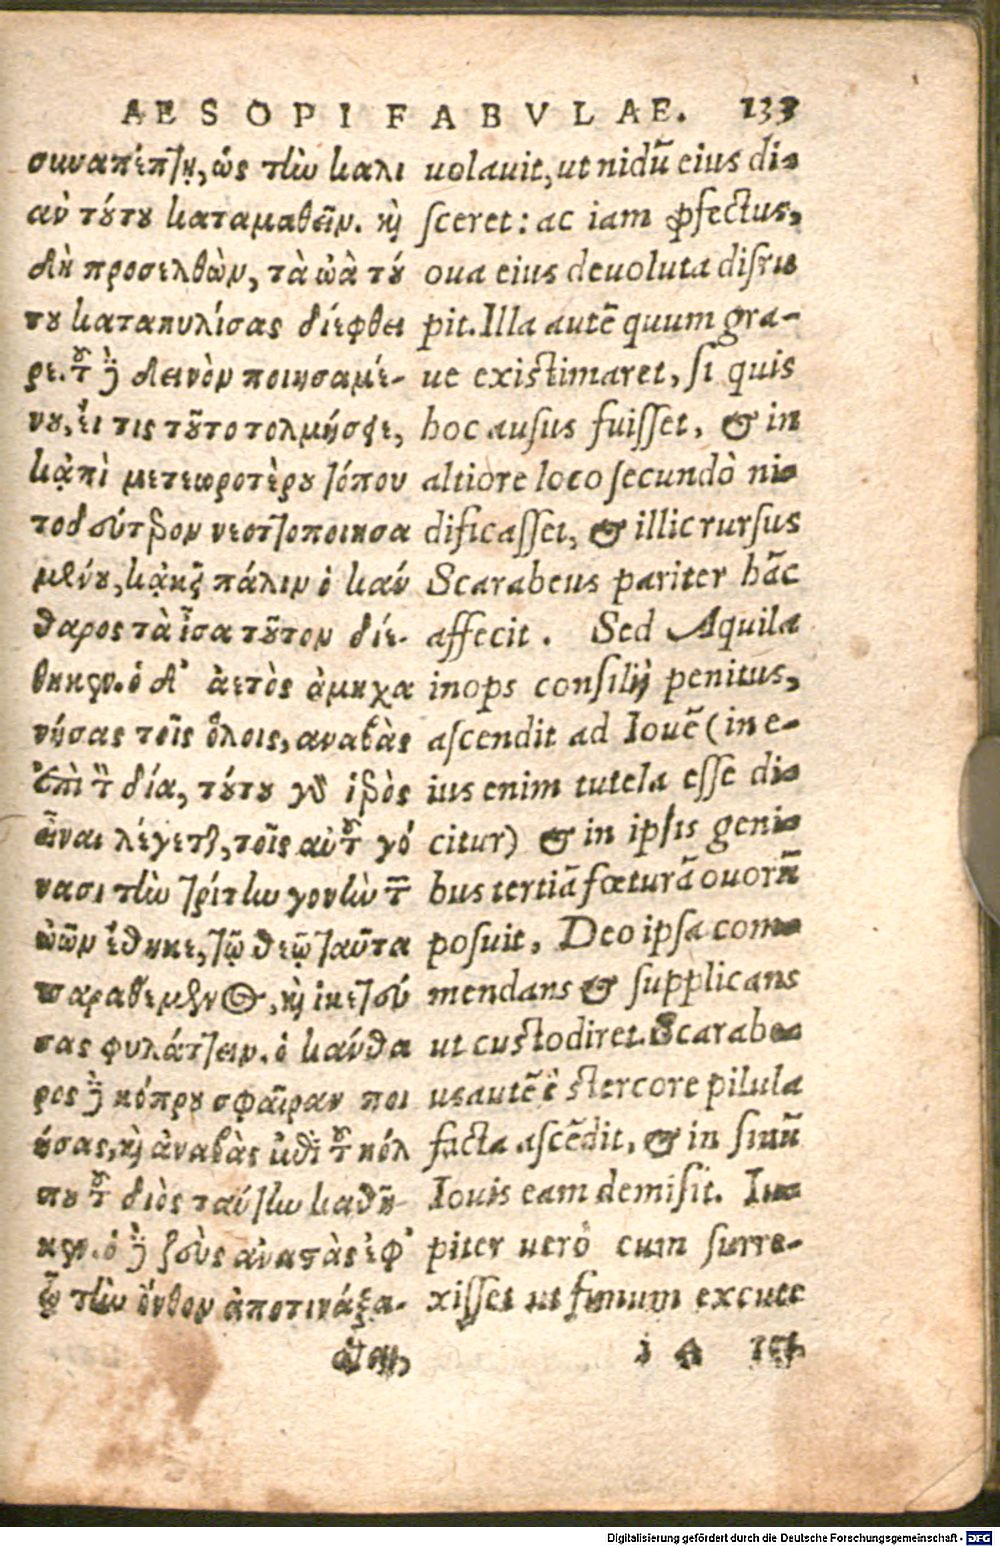 AESOPI FABVLAE. 133
συναπέπτη, ὡς τὴν καλι
ὰν τούτου καταμαθεῖν. καὶ
δὴ προσελθὼν, τὰ ὠὰ τού
του κατακυλίσας διέφθει
ρε. τοῦ δὲ δεινὸν ποιησαμέ-
νου, εἴ τις τοῦτο τολμήσειε,
κἀπὶ μετεωροτέρου τόπου
τὸ δεύτερον νεοττοποιησα
μένου, κἀκεῖ πάλιν ὁ κάν
θαρος τὰ ἴσα τοῦτον διέ-
θηκεν. ὁ δ' ἀετὸς ἀμηχα
νήσας τοῖς ὅλοις, ἀναβὰς
ἐπὶ τὸν δία, τούτου γὰρ ἱερὸς
εἶναι λέγεται, τοῖς αὐτοῦ γό
νασι τὴν τρίτην γονὴν τῶν
ὠῶν ἔθηκε, τῷ θεῷ ταῦτα
παραθέμενος, καὶ ἱκετεύ
σας φυλάττειν. ὁ κάνθα
ρος δὲ κόπρου σφαῖραν ποι
ήσας, καὶ ἀναβὰς ἐπὶ τοῦ κόλ
που τοῦ διὸς ταύτην καθῆ-
κεν. ὁ δὲ ζεὺς ἀναστὰς ἐφ'
ᾧ τὴν ὄνθον ἀποτινάξα-
uolauit, ut nidū eius di-
sceret: ac iam ꝓfectus,
oua eius deuoluta disru-
pit. Illa autē quum gra-
ue existimaret, si quis
hoc ausus fuisset, & in
altiore loco secundò ni-
dificasset, & illic rursus
Scarabeus pariter hāc
affecit. Sed Aquila
inops consilij penitus,
ascendit ad Iouē (in e-
ius enim tutela esse di-
citur) & in ipsis geni-
bus tertiā fœturā ouorū
posuit, Deo ipsa com-
mendans & supplicans
ut custodiret. Scarabe-
us autē è stercore pilula
facta ascēdit, & in sinū
Iouis eam demisit. Iu-
piter uerò cum surre-
xisset ut fimum excute
Digitalisierung gefördert durch die Deutsche Forschungsgemeinschaft - DFG